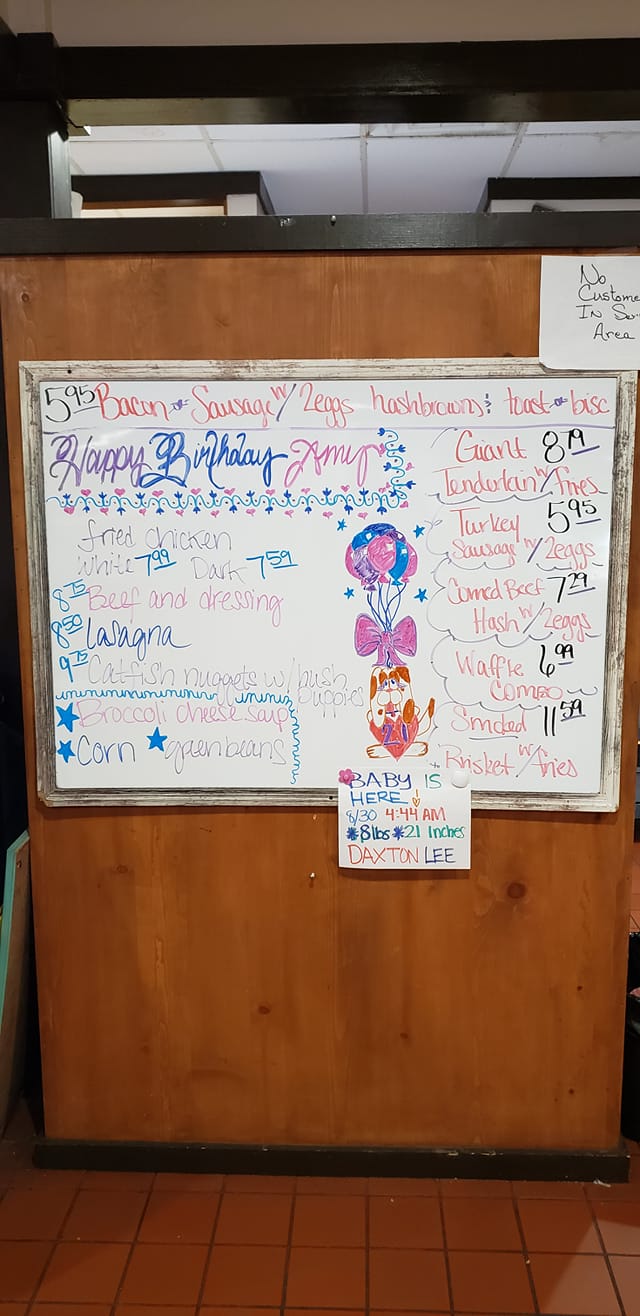 No
Custome
In Se
Area
5.95 Bacon or Sausage w/ 2eggs hashbrowns & toast or bisc
Happy Birthday Amy
fried chicken
White 7.99 Dark 7.59
8.75 Beef and dressing
8.50 Lasagna
9.75 Catfish nuggets w/ hush
puppies
Broccoli cheese soup
Corn green beans
Giant 8.79
Tenderloin w/ Fries
Turkey 5.95
Sausage w/ 2eggs
Corned Beef 7.29
Hash w/ 2eggs
Waffle 6.99
Combo
Smoked 11.59
Brisket w/ fries
BABY IS
HERE!
8/30 4:44 AM
*8lbs *21 Inches
DAXTON LEE